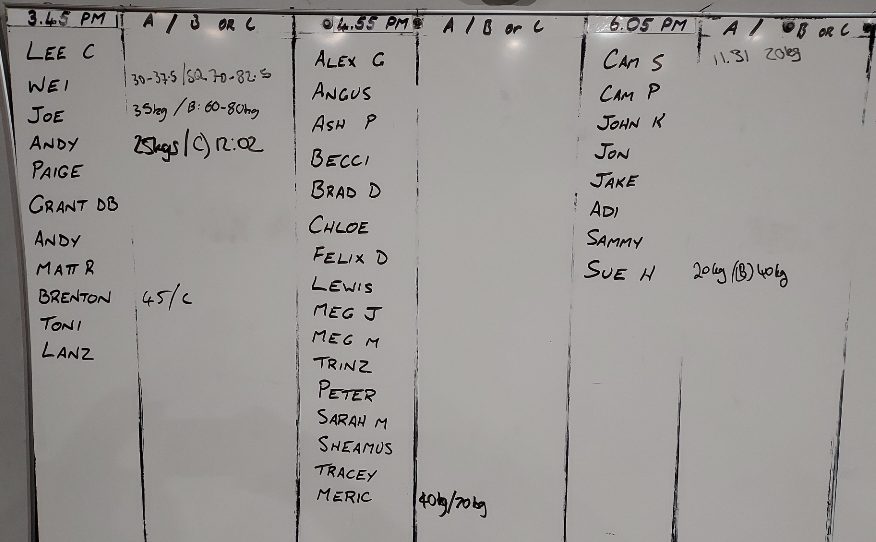 3.45 PM A / B OR C
LEE C
WEI 30-37.5/52-70-82.5
JOE 35kg / B: 60-80kg
ANDY 25kgs/C) 12:02
PAIGE
GRANT DB
ANDY
MATT R
BRENTON 45/C
TONI
LANZ
4.55 PM A / B or C
ALEX G
ANGUS
ASH P
BECCI
BRAD D
CHLOE
FELIX D
LEWIS
MEG J
MEG M
TRINZ
PETER
SARAH M
SHEAMUS
TRACEY
MERIC 40kg/70kg
6.05 PM A / B OR C
CAM S 11.31 20kg
CAM P
JOHN K
JON
JAKE
ADI
SAMMY
SUE H 20kg/(B) 40kg